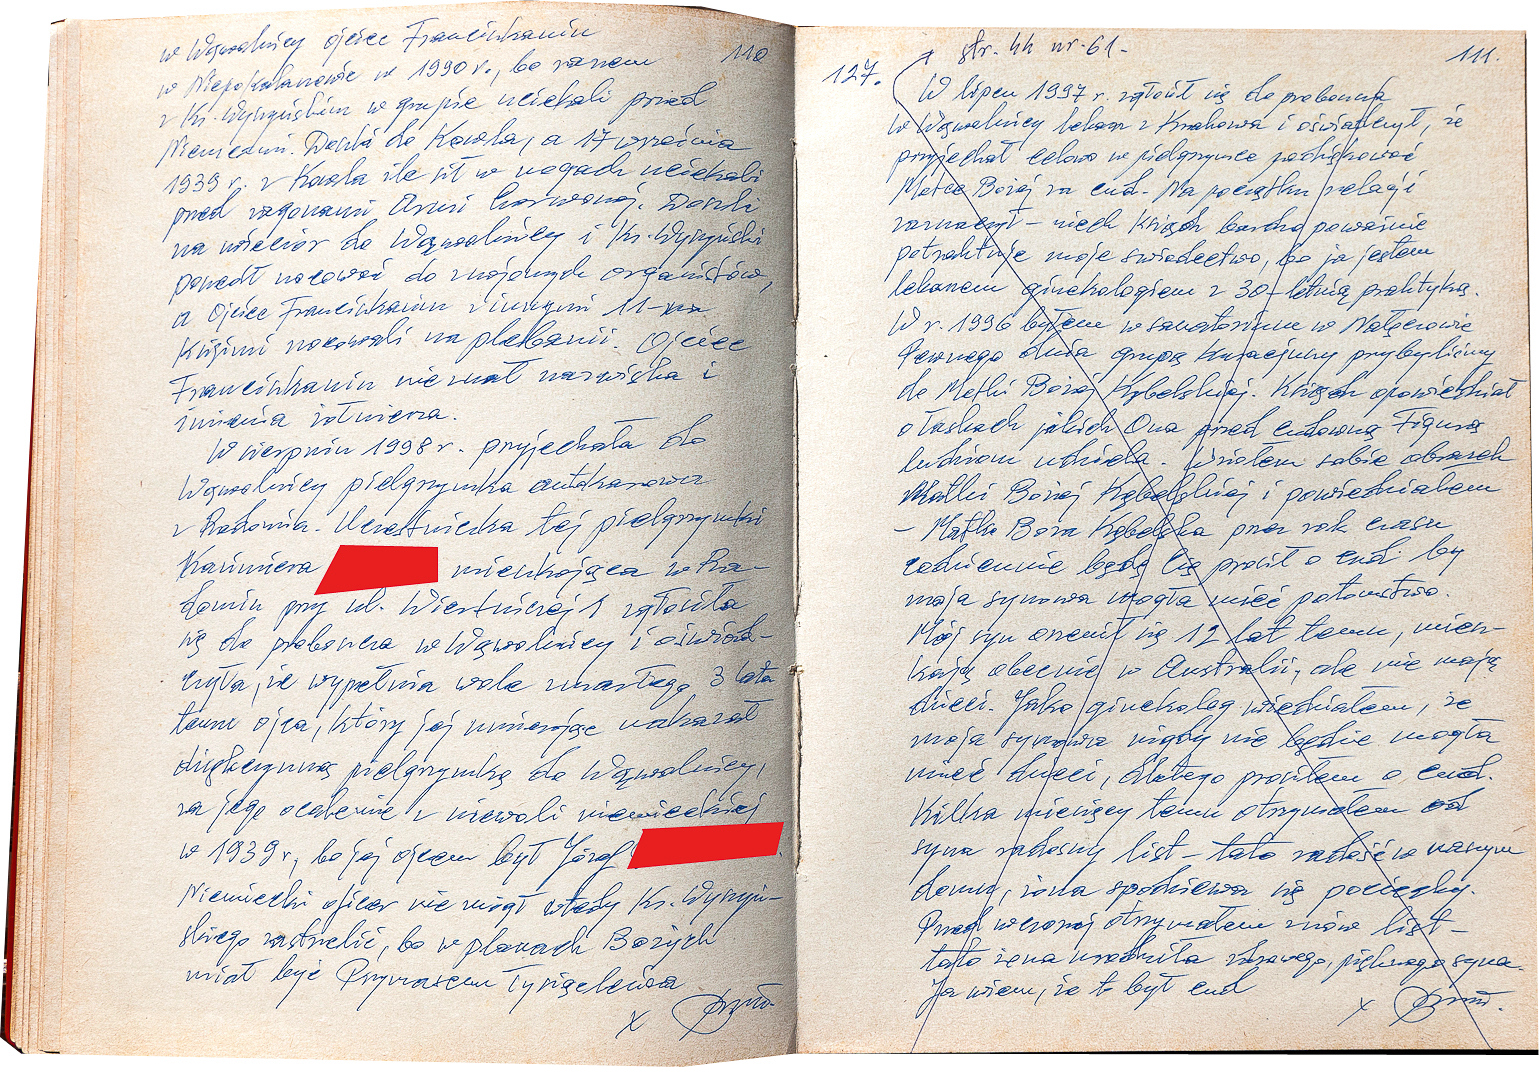 110
w Wąwolnicy ojciec Franciszkanin
w Niepokalanowie w 1990 r., bo razem
z Ks. Wyszyńskim w grupie uciekali przed
Niemcami. Doszli do Kowla, a 17 września
1939 r. z Kowla ile sił w nogach uciekali
przed zagonami Armii Czerwonej. Doszli
na wieczór do Wąwolnicy i Ks. Wyszyński
poszedł nocować do znajomych organistów,
a Ojciec Franciszkanin z innymi 11-
Księżmi nocowali na plebanii. Ojciec
Franciszkanin nie znał nazwiska i
imienia żołnierza.
W sierpniu 1998 r. przyjechała do
Wąwolnicy pielgrzymka autokarowa
z Radomia. Uczestniczka tej pielgrzymki
Kazimiera mieszkająca w Ra-
domiu przy ul. Wierzbickiej 1 zgłosiła
się do proboszcza w Wąwolnicy i oświad-
czyła, że wypełnia wolę zmarłego 3 lata
temu ojca, który jej umierając nakazał
dziękczynną pielgrzymkę do Wąwolnicy,
za jego ocalenie z niewoli niemieckiej
w 1939 r, bo jej ojcem był Józef
Niemiecki oficer nie mógł wtedy Ks. Wyszyń-
skiego zastrzelić, bo w planach Bożych
miał być Prymasem Tysiąclecia
x
111.
str. 44 nr. 61.
127.
W lipcu 1997 r. zgłosił się do proboszcza
w Wąwolnicy lekarz z Krakowa i oświadczył, że
przyjechał celowo w pielgrzymce podziękować
Matce Bożej za cud. Na początku relacji
zaznaczył – niech Ksiądz bardzo poważnie
potraktuje moje świadectwo, bo ja jestem
lekarzem ginekologiem z 30-letnią praktyką.
W r. 1996 byłem w sanatorium w Nałęczowie
Pewnego dnia grupą kuracjuszy przybyliśmy
do Matki Bożej Kębelskiej. Ksiądz opowiedział
o łaskach jakich Ona przed cudowną Figurą
ludziom udziela. Wziąłem sobie obrazek
Matki Bożej Kębelskiej i powiedziałem
– Matko Boża Kębelska przez rok czasu
codziennie będę Cię prosił o cud by
moja synowa mogła mieć potomstwo.
Mój syn ożenił się 12 lat temu, miesz-
kają obecnie w Australii, ale nie mają
dzieci. Jako ginekolog wiedziałem, że
moja synowa nigdy nie będzie mogła
mieć dzieci, dlatego prosiłem o cud.
Kilka miesięcy temu otrzymałem od
syna radosny list – tato radość w naszym
domu, żona spodziewa się pociechy.
Przed wczoraj otrzymałem znów list –
tato żona urodziła zdrowego, pięknego syna.
Ja wiem, że to był cud
x